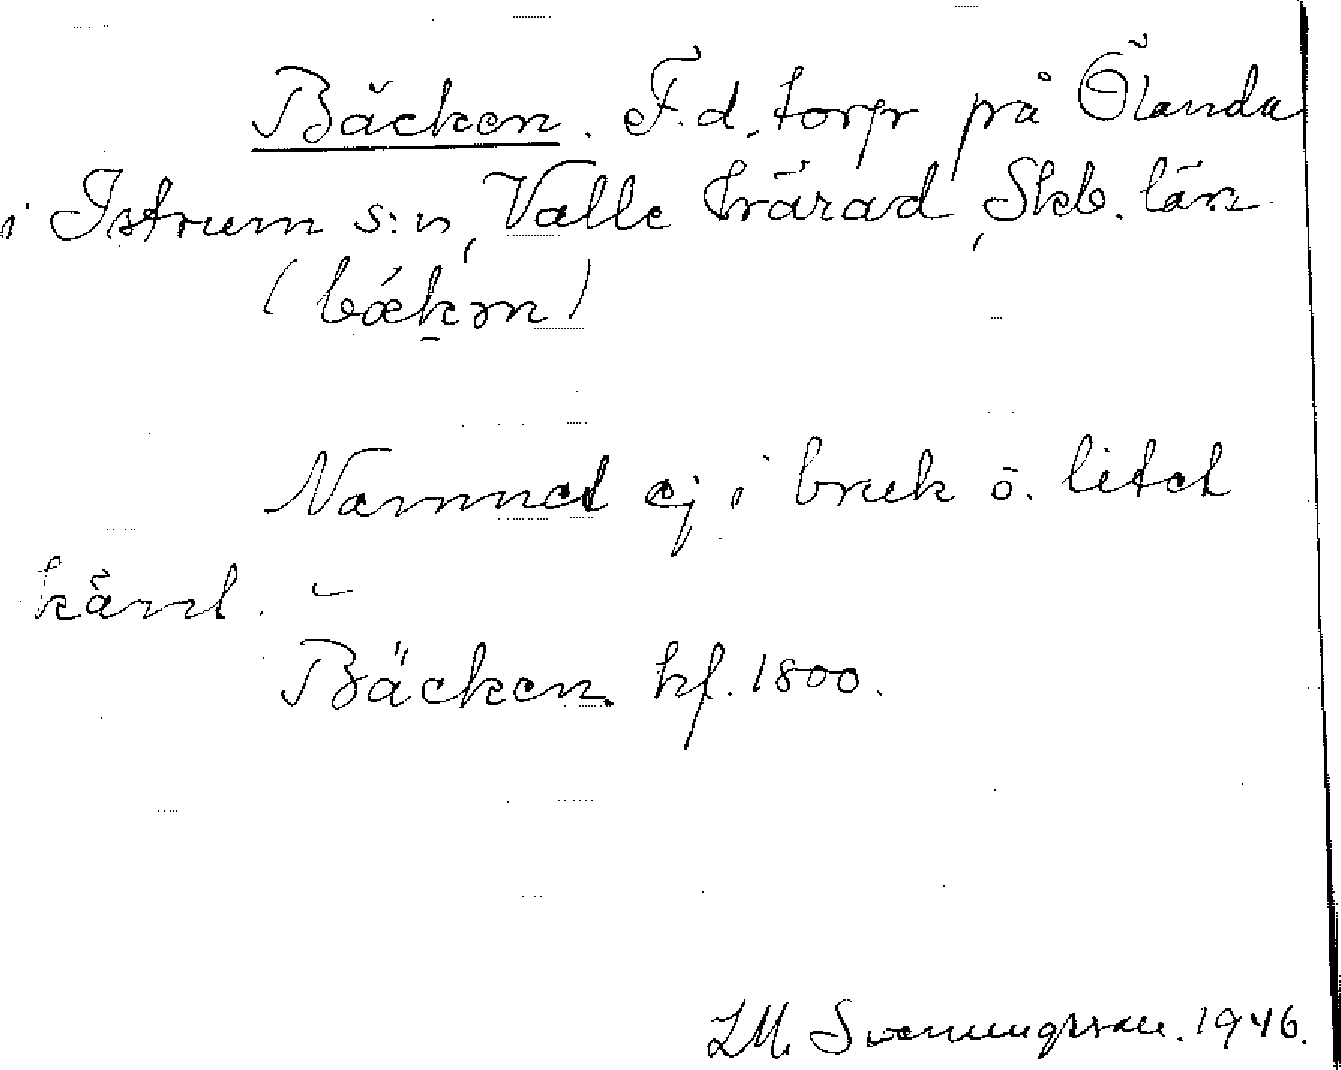 Bäcken. F.d. torp på Ölanda
i Istrum s:n, Valle härad, Skb. län
(bǽkɘn)
Namnet ej i bruk o. litet
känt. –
Bäcken hf. 1800.
LM. Svenungsson. 1946.